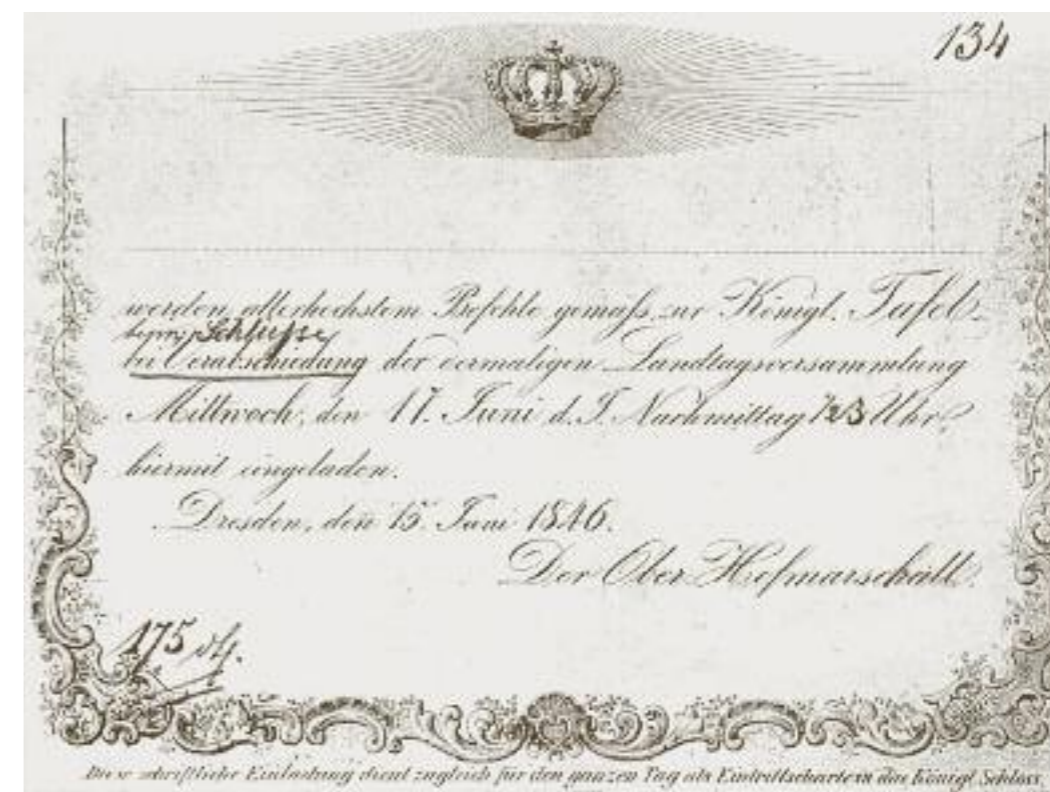 134
werden allerhöchstem Befehle gemäß zur Königl. Tafel
beym Schlusse
bei Verabschiedung der dermaligen Landtagsversammlung
Mittwoch, den 17. Juni d. J. Nachmittag ½3 Uhr
hiermit eingeladen.
Dresden, den 15. Juni 1846.
Der Ober Hofmarschall.
175
Diese schriftliche Einladung dient zugleich für den ganzen Tag als Eintrittscharte in das Königl. Schloss.